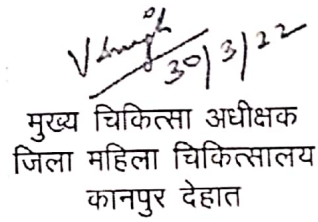 30/3/22
मुख्य चिकित्सा अधीक्षक
जिला महिला चिकित्सालय
कानपुर देहात